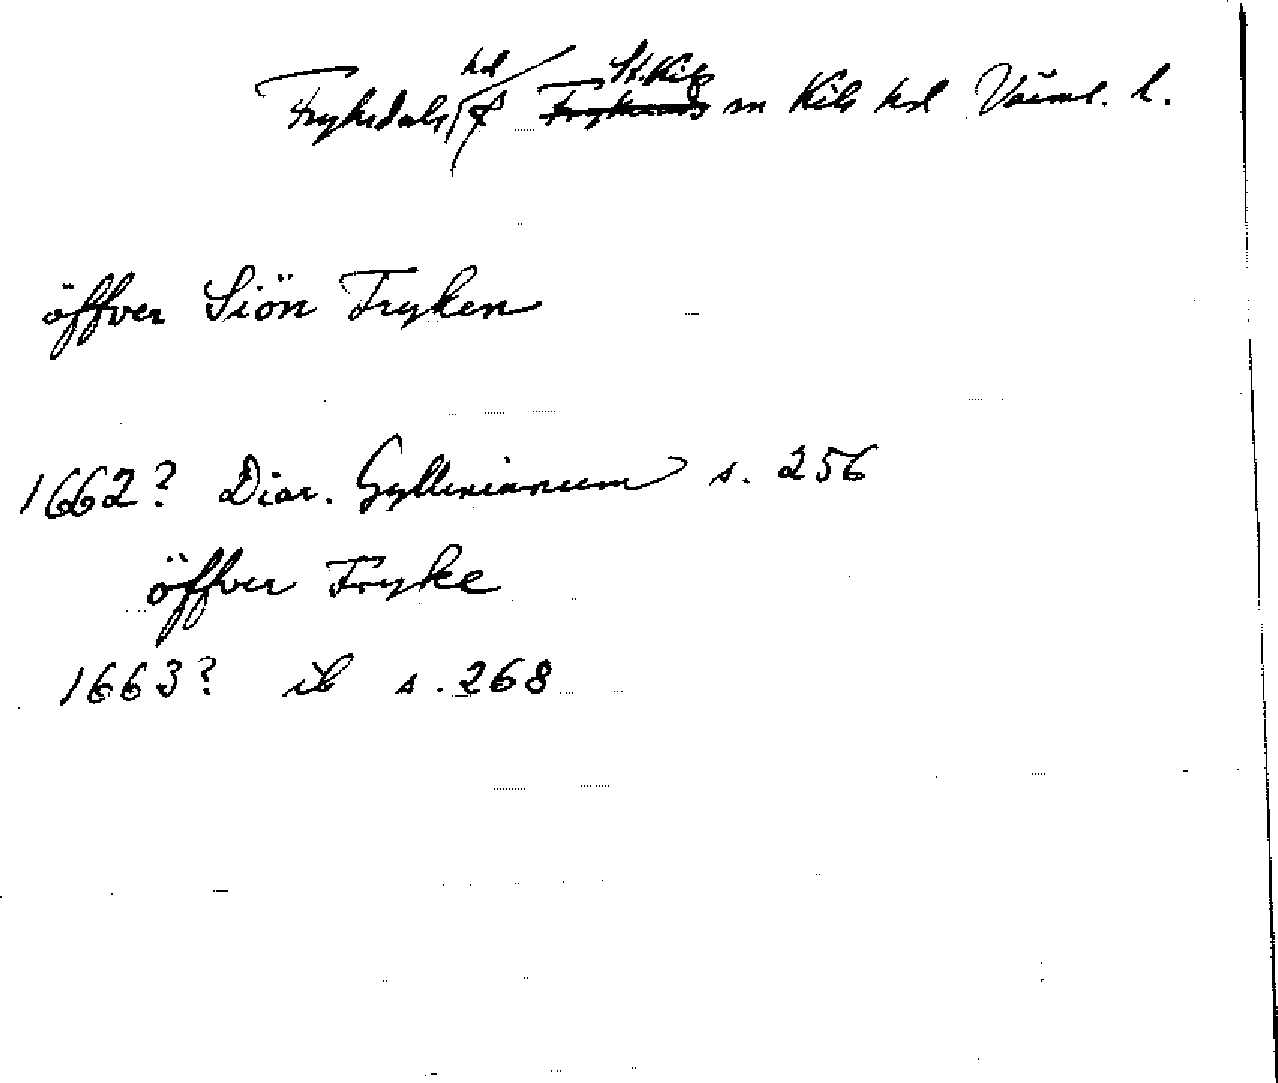 Fryksdals hd & St. Kils sn Kils hd Värml. l.
öffver Siön Fryken
1662? Diar. Gyllenianum s. 256
öffver Fryke
1663? ib s. 268